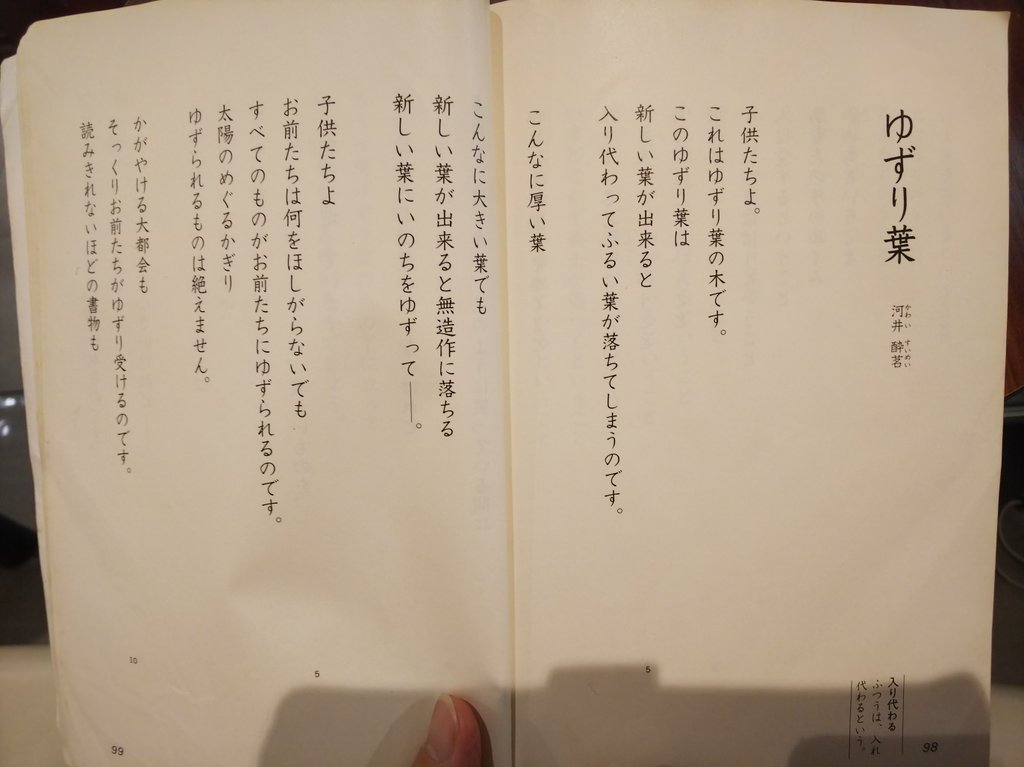 ゆずり葉
河井 酔茗
かわい すいめい
子供たちよ。
これはゆずり葉の木です。
このゆずり葉は
新しい葉が出来ると
入り代わってふるい葉が落ちてしまうのです。
こんなに厚い葉
5
入り代わる
ふつうは、入れ
代わるという。
98
こんなに大きい葉でも
新しい葉が出来ると無造作に落ちる
新しい葉にいのちをゆずって――。
子供たちよ
お前たちは何をほしがらないでも
すべてのものがお前たちにゆずられるのです。
太陽のめぐるかぎり
ゆずられるものは絶えません。
かがやける大都会も
そっくりお前たちがゆずり受けるのです。
読みきれないほどの書物も
5
10
99